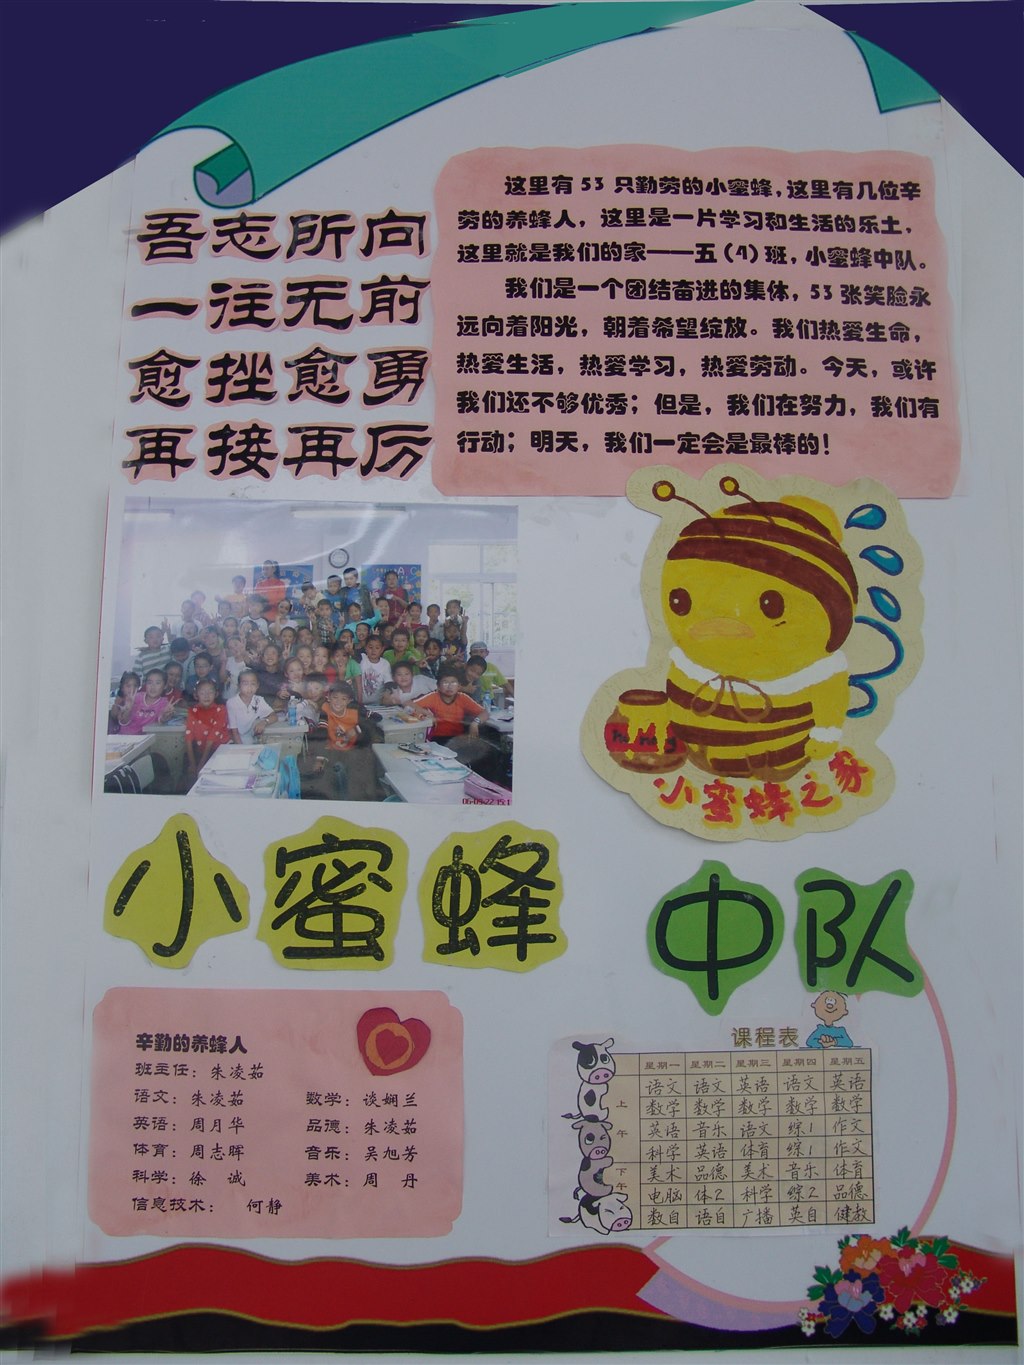 吾志所向
一往无前
愈挫愈勇
再接再厉
这里有 53 只勤劳的小蜜蜂，这里有几位辛
劳的养蜂人，这里是一片学习和生活的乐土，
这里就是我们的家——五（4）班，小蜜蜂中队。
我们是一个团结奋进的集体，53 张笑脸永
远向着阳光，朝着希望绽放。我们热爱生命，
热爱生活，热爱学习，热爱劳动。今天，或许
我们还不够优秀；但是，我们在努力，我们有
行动；明天，我们一定会是最棒的！
小蜜蜂之家
小蜜蜂 中队
辛勤的养蜂人
班主任：朱凌茹
语文：朱凌茹 数学：谈娴兰
英语：周月华 品德：朱凌茹
体育：周志晖 音乐：吴旭芳
科学：徐 诚 美术：周 丹
信息技术： 何静
课程表
星期一 星期二 星期三 星期四 星期五
语文 语文 英语 语文 英语
上 数学 数学 数学 数学 数学
午 英语 音乐 语文 综1 作文
科学 英语 体育 综1 作文
下 美术 品德 美术 音乐 体育
午 电脑 体2 科学 综2 品德
数自 语自 广播 英自 健教